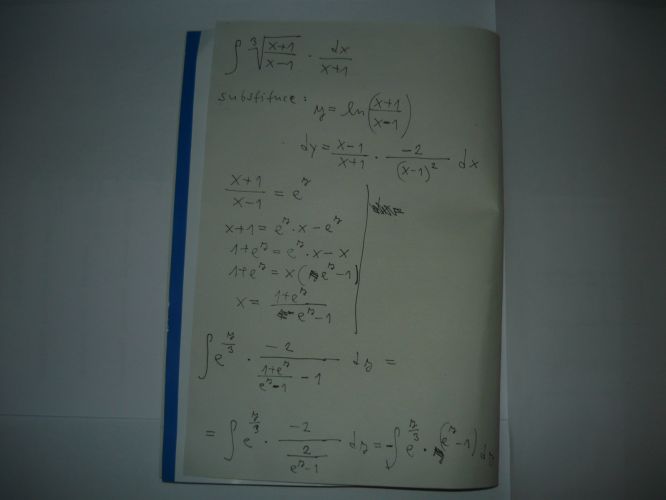 ∫ ∛((x+1)/(x-1)) · dx/(x+1)
substituce: y = ln((x+1)/(x-1))
dy = (x-1)/(x+1) · -2/(x-1)² dx
(x+1)/(x-1) = e^y
x+1 = e^y · x - e^y
1+e^y = e^y · x - x
1+e^y = x(e^y - 1)
x = (1+e^y)/(e^y - 1)
∫ e^(y/3) · -2/((1+e^y)/(e^y-1) - 1) dy =
= ∫ e^(y/3) · -2/(2/(e^y-1)) dy = -∫ e^(y/3) · (e^y - 1) dy